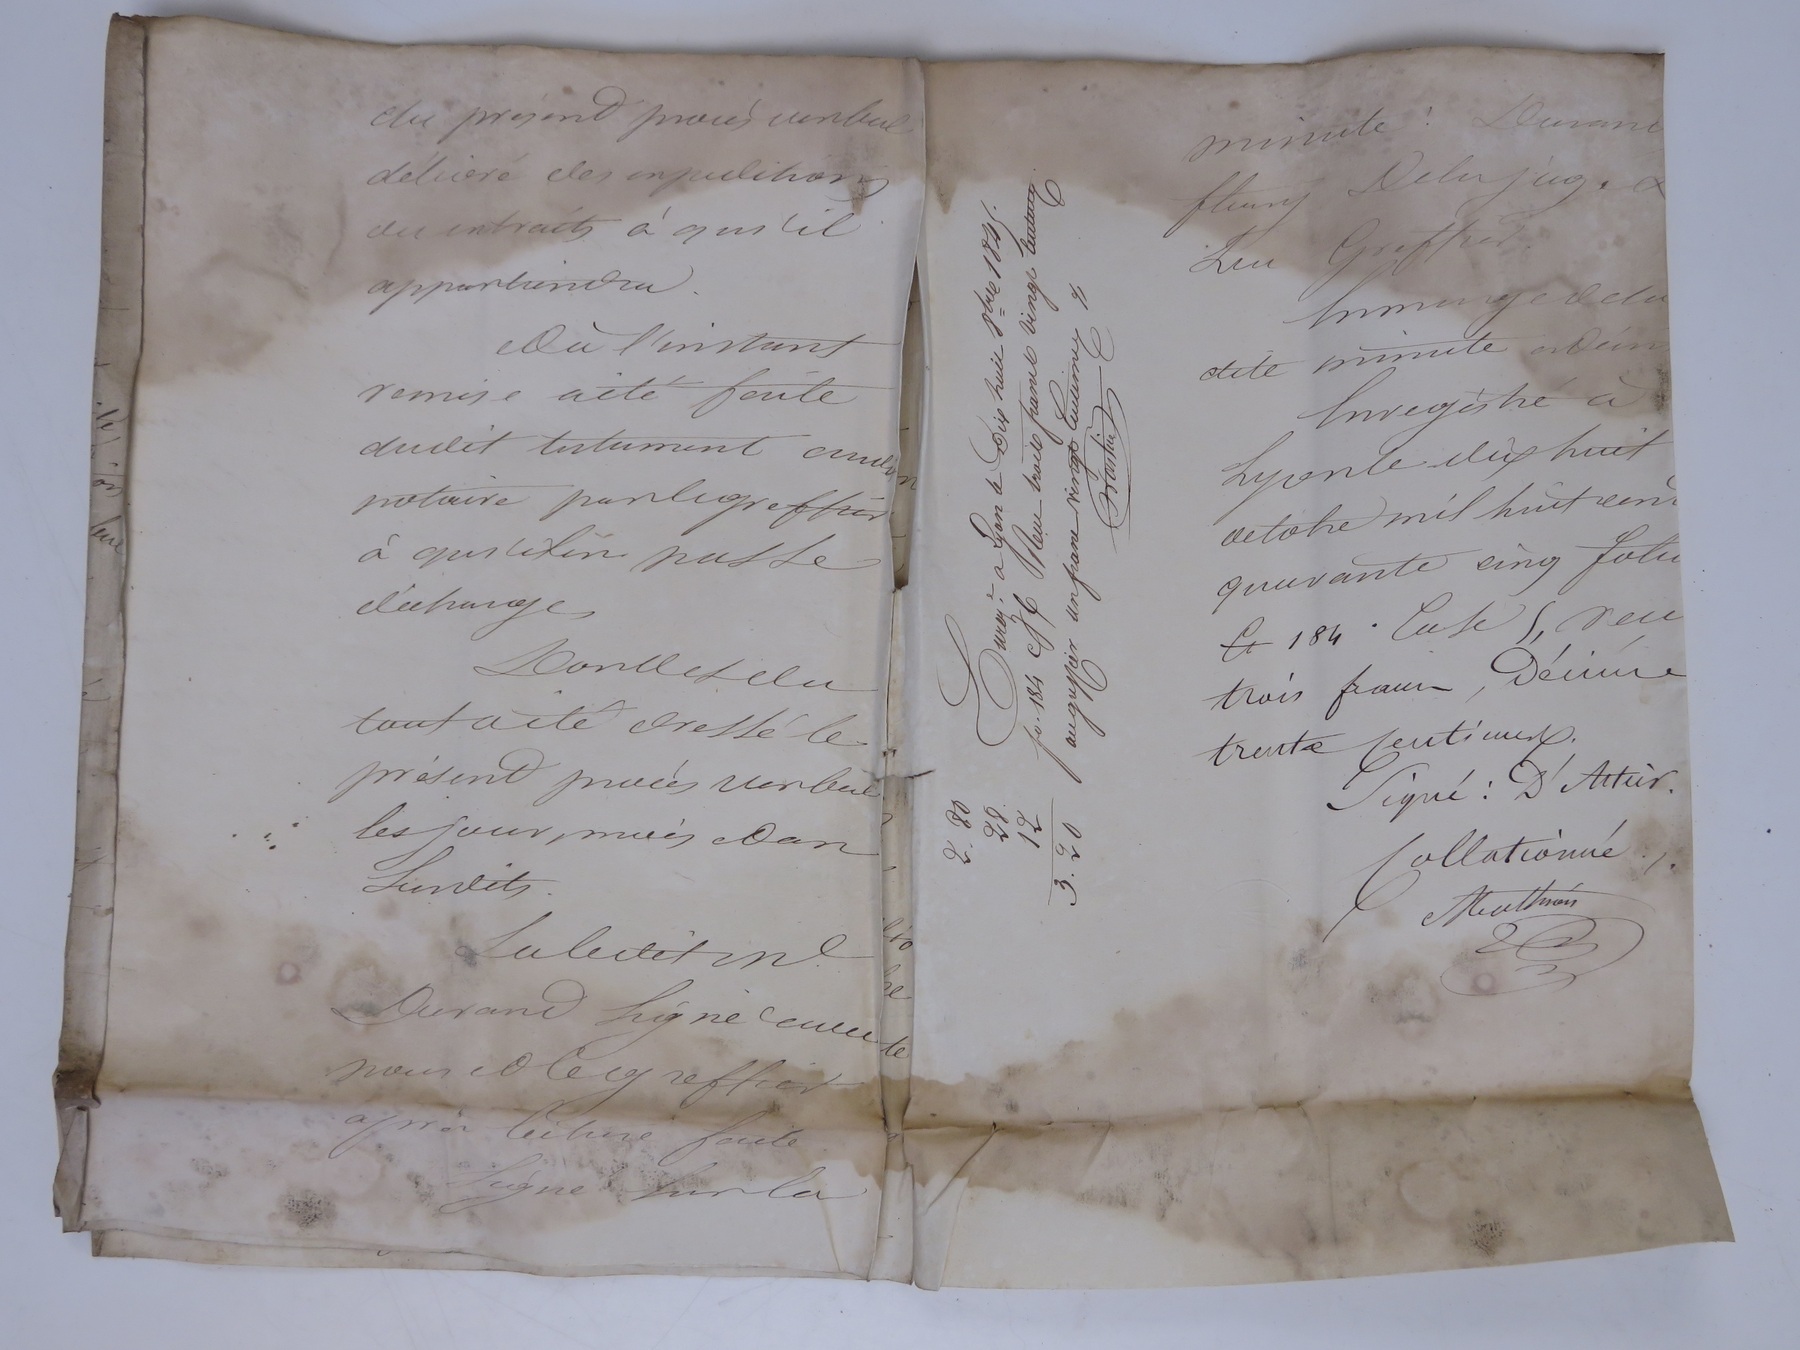 du présent procès verbal
délivré des expéditions
ou extraits à qui il
appartiendra.
Et à l'instant
remise a été faite
dudit testament audit
notaire par le greffier
à qui il en passe
décharge
Dont et du
tout a été dressé le
présent procès verbal
les jour, mois et an
susdits.
Et a ledit Me
Durand signé avec
nous et le greffier
après lecture faite
Signé sur la
Enregé à Lyon le Dix huit 8bre 1845.
fo. 184 Reçu trois francs vingt centimes
au greffier un franc vingt centimes
2. 80
28
12
3. 20
minute : Durand
fleury Delu juge &
Greffier.
En marge de la
dite minute est écrit
Enregistré à
Lyon le dix huit
octobre mil huit cent
quarante cinq folio
184 Case 5, reçu
trois francs, Décime
trente centimes.
Signé : D'Attier.
Collationné